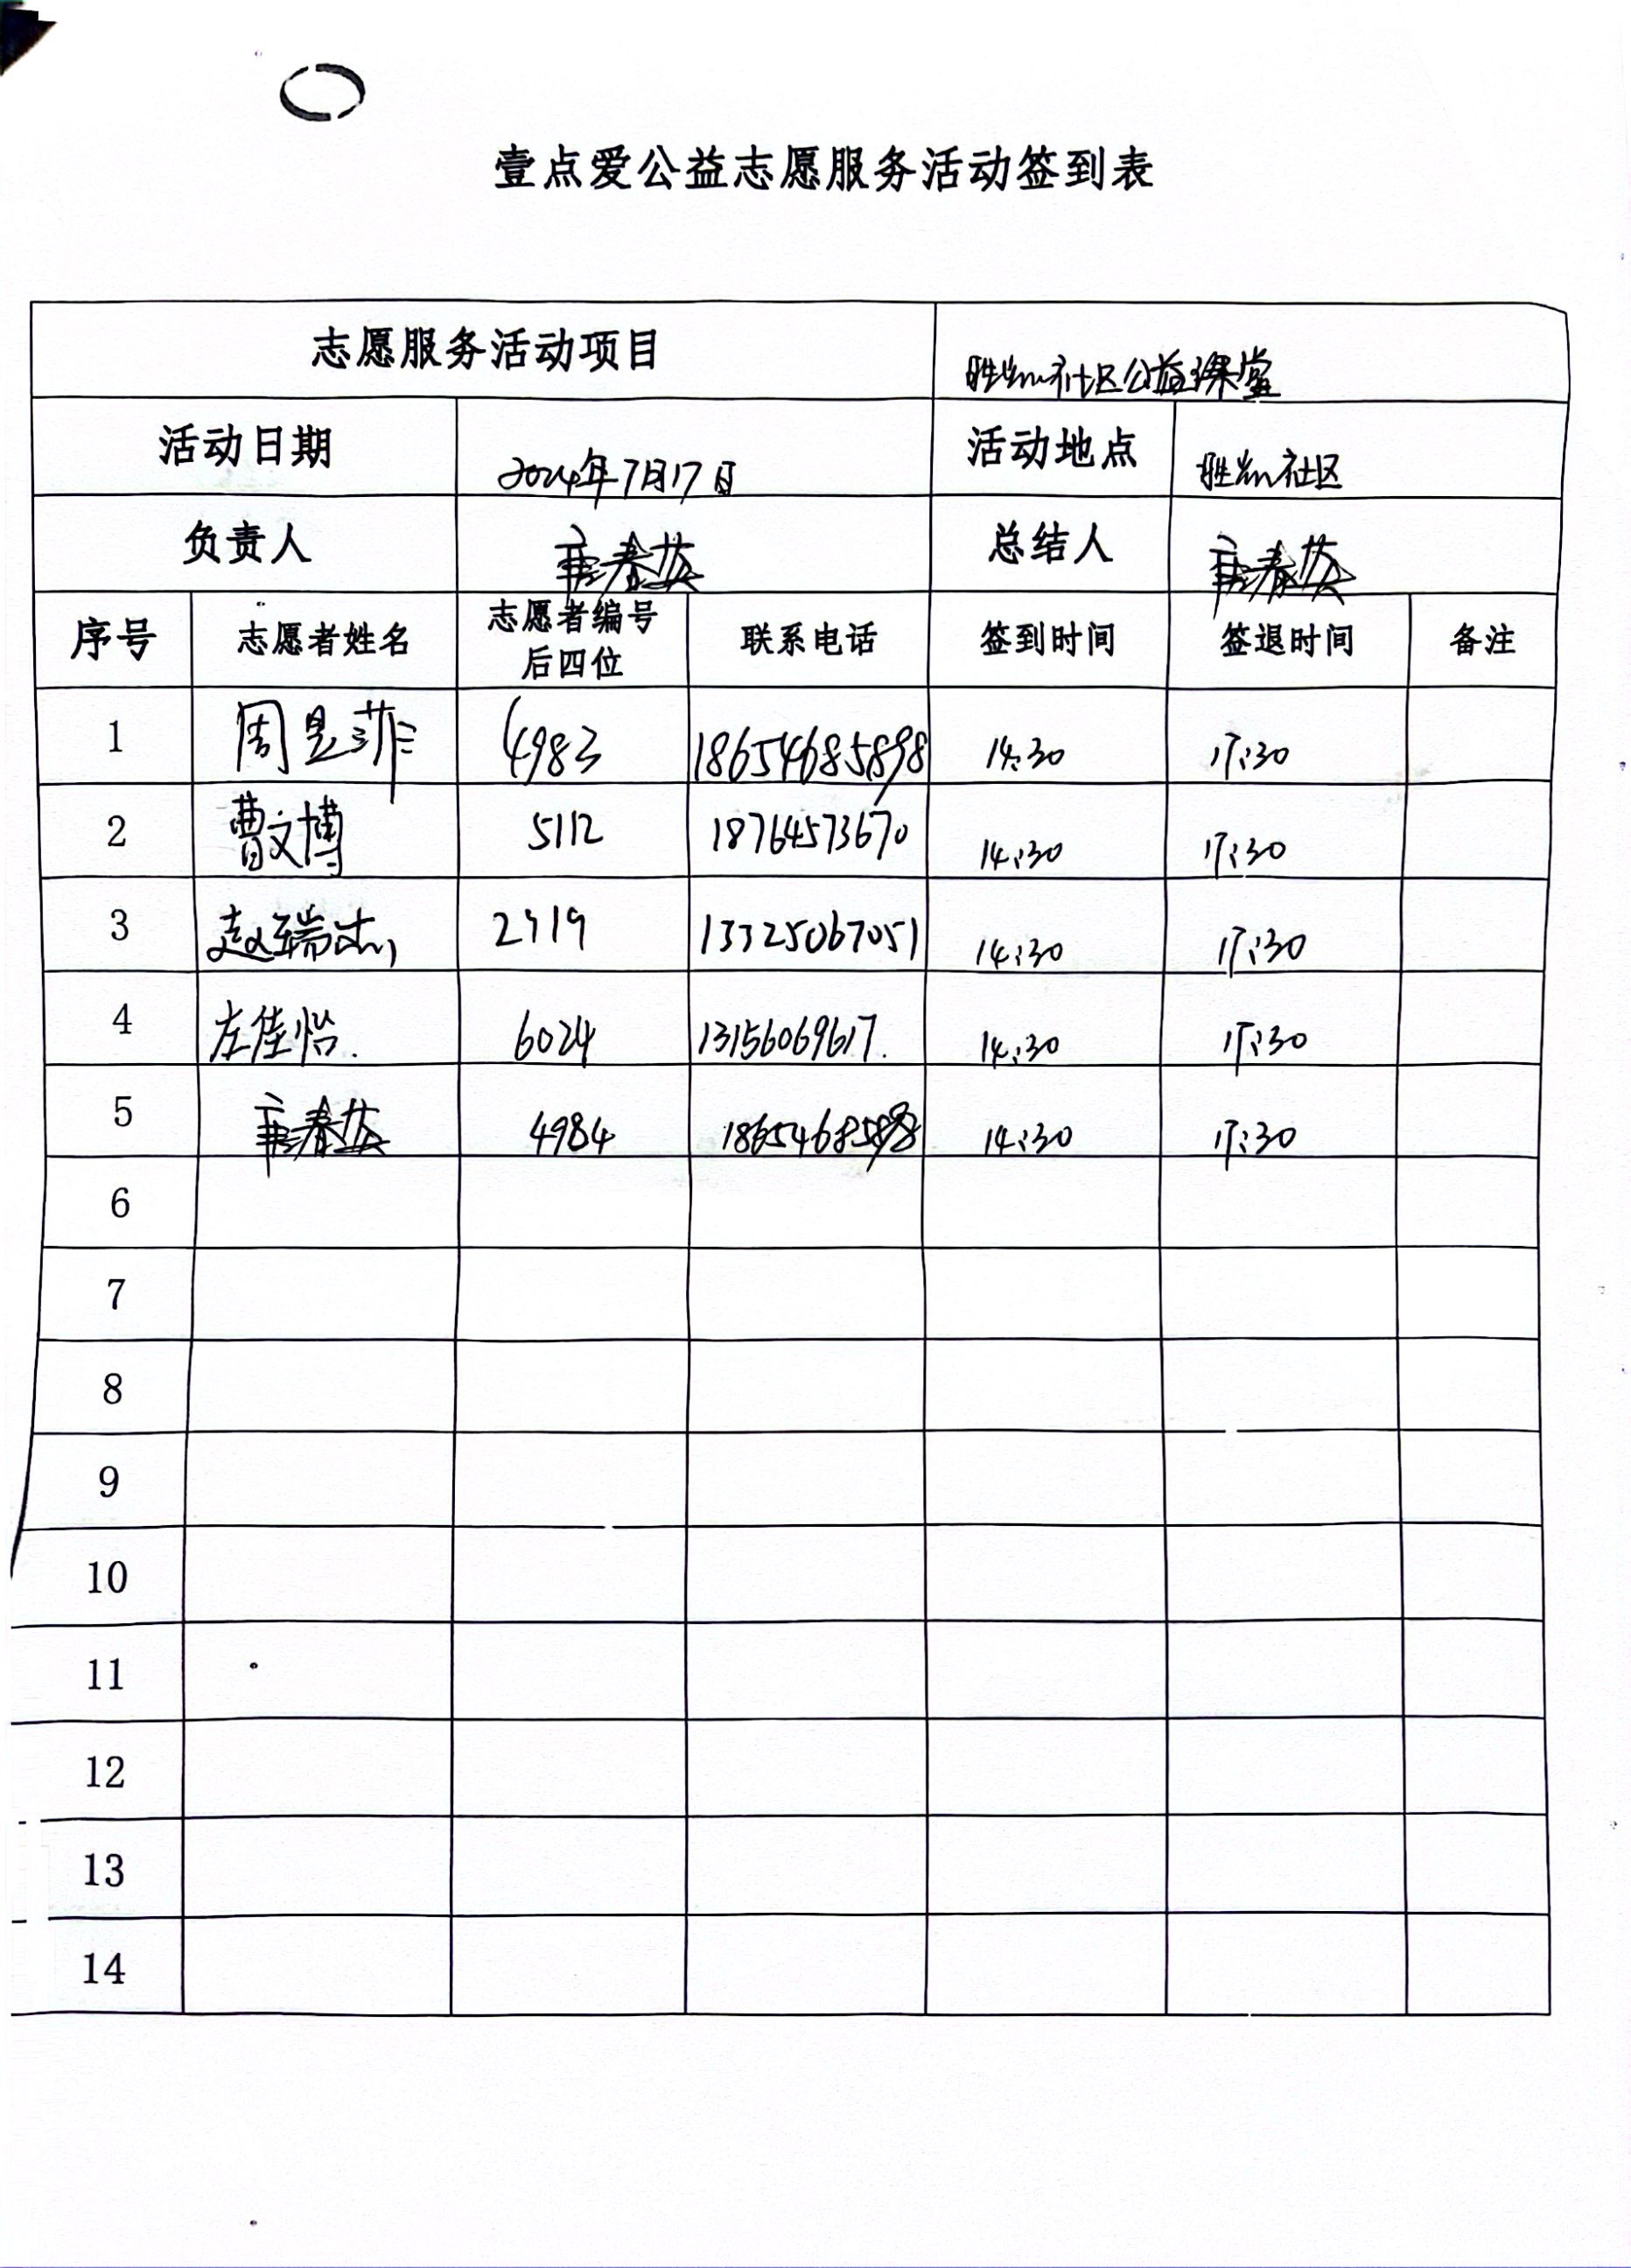 壹点爱公益志愿服务活动签到表
志愿服务活动项目 社区公益课堂
活动日期 2024年7月17日 活动地点 社区
负责人 春英 总结人 春英
序号 志愿者姓名 志愿者编号后四位 联系电话 签到时间 签退时间 备注
1 周是菲 4983 18654685898 14:30 17:30
2 曹文博 5112 18764573670 14:30 17:30
3 赵瑞杰 2919 13325067051 14:30 17:30
4 左佳怡. 6024 13156069617. 14:30 17:30
5 春英 4984 18654685898 14:30 17:30
6
7
8
9
10
11
12
13
14